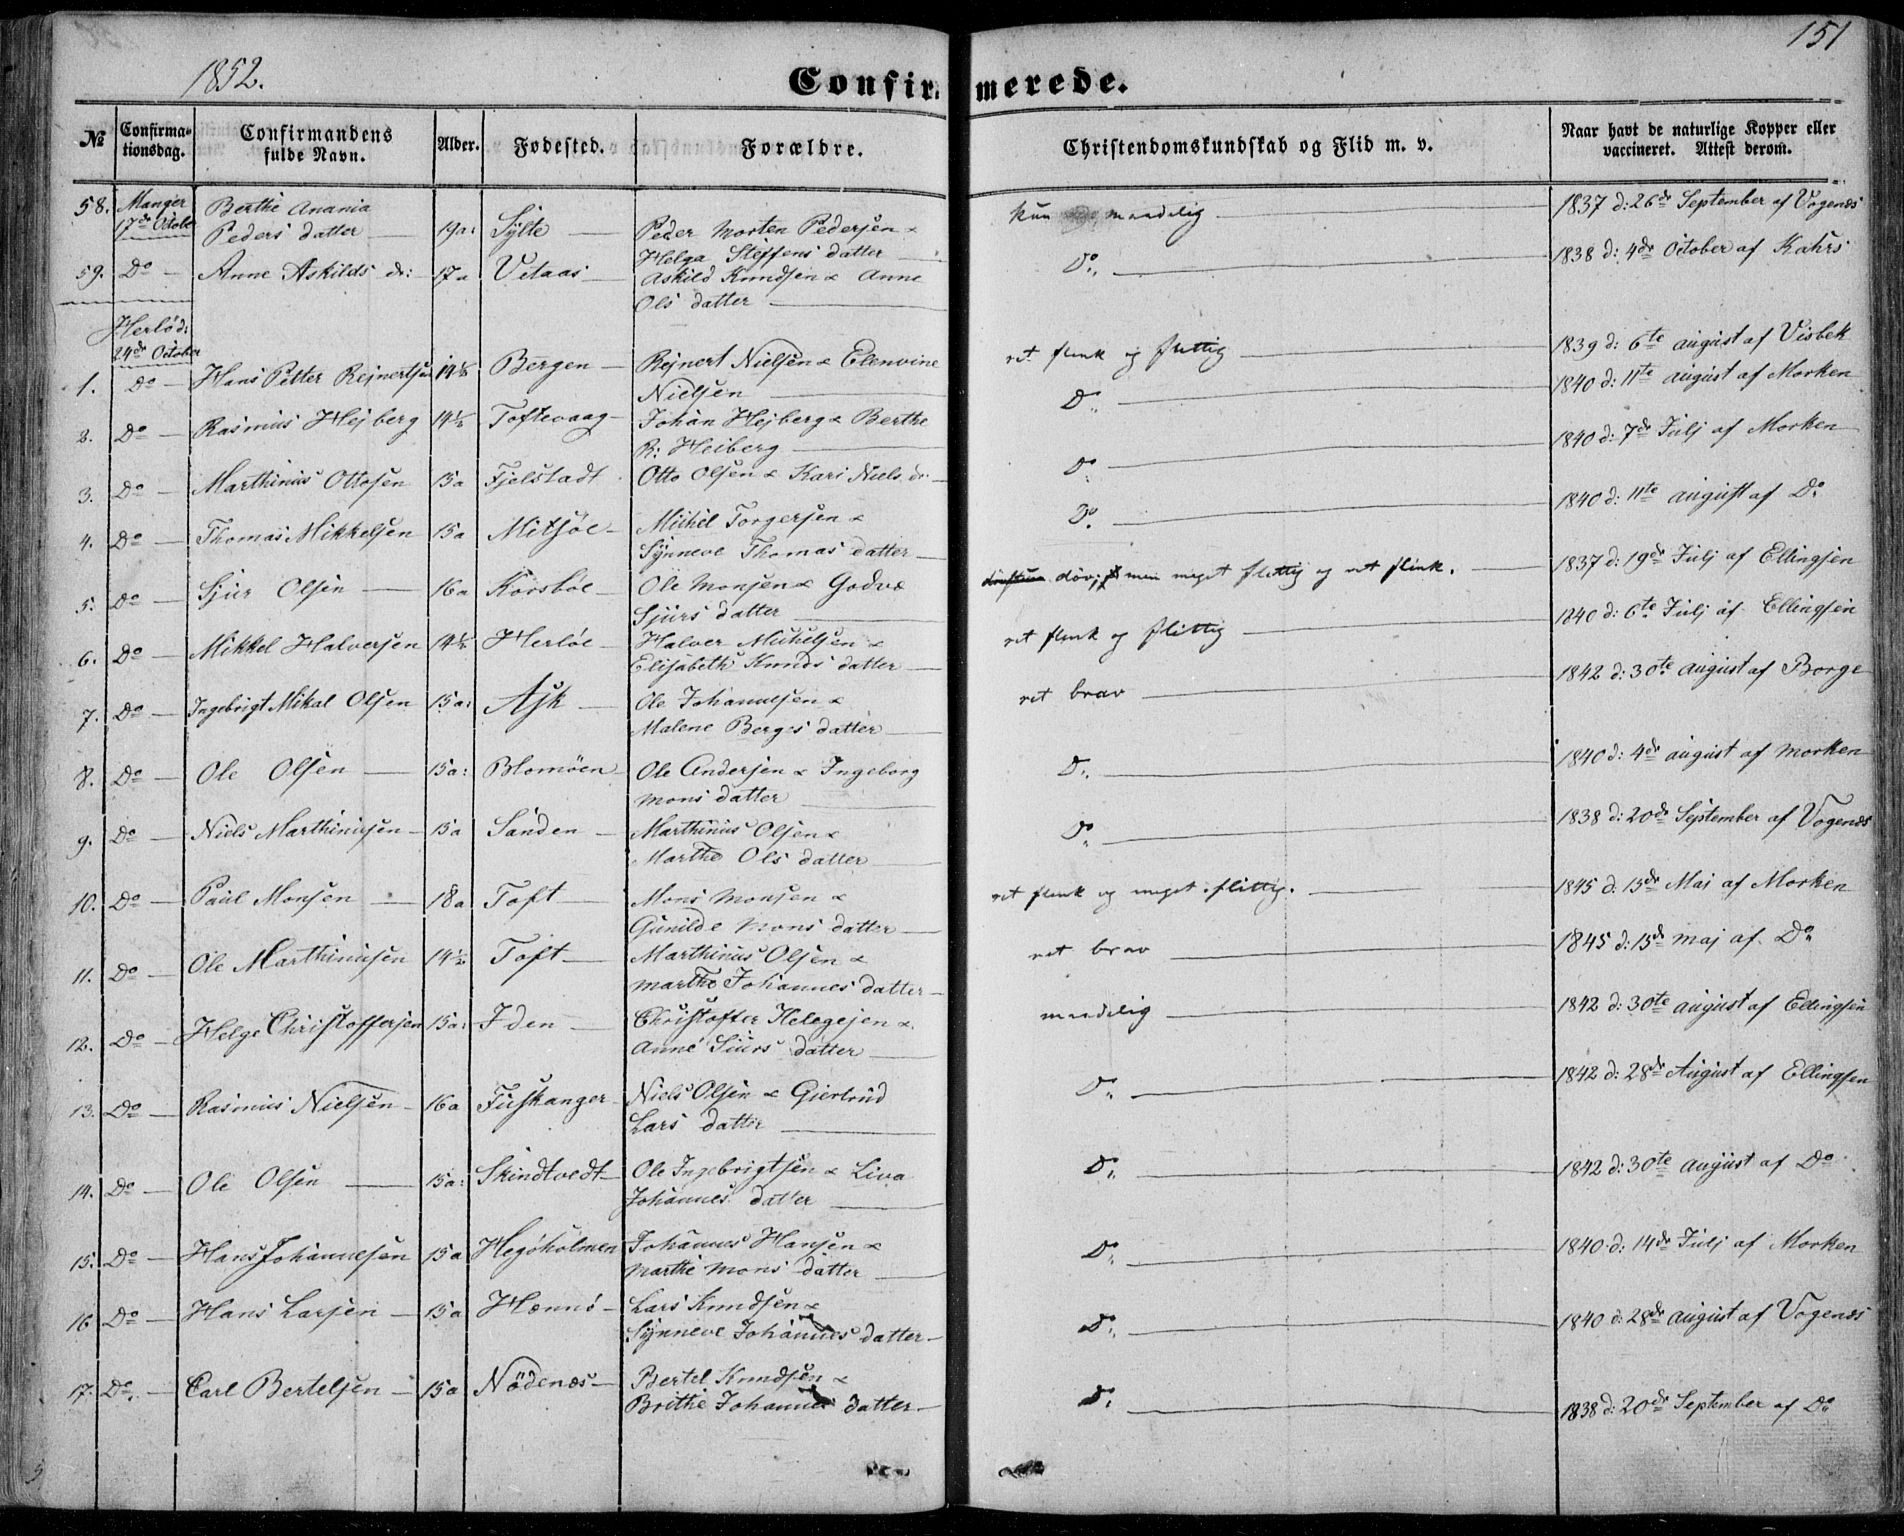 151
1852.
Confirmerede.
№ Confirmationsdag. Confirmandens fulde Navn. Alder. Fødested. Forældre. Christendomskundskab og Flid m. v. Naar havt de naturlige Kopper eller vaccineret. Attest derom.
58. Manger 17de October Berthe Anania Peders datter 19a: Sylte Peder Morten Pedersen & Helga Steffens datter kun maadelig 1837 d: 26de September af Vogenæs
59. Do Anne Askilds dr: 17a Vetaas Askild Knudsen & Anne Ols datter Do. 1838 d: 4de October af Kahrs
Herlöe: 24de October
1. Do Hans Petter Rejnertsen 14½ Bergen Rejnert Nielsen & Elenvine Nielsen ret flink og flittig 1839 d: 6te august af Visbek
2. Do Rasmus Hejberg 14½ Toftevaag Johan Hejberg & Berthe R: Heiberg Do. 1840 d: 11te august af Morken
3. Do Marthinus Ottosen 15a Fjelstadt Otto Olsen & Kari Niels dr: Do. 1840 d: 7de Julj af Morken
4. Do Thomas Mikkelsen 15a Mitsöe Michel Torgersen & Synneve Thomas datter Do. 1840 d: 11te august af Do.
5. Do Sjur Olsen 16a Korsböe Ole Monsen & Godvæ Sjurs datter döv; men meget flittig og ret flink. 1837 d: 19de Julj af Ellingsen
6. Do Mikkel Halversen 14½ Herlöe Halver Michelsen & Elisabeth Knuds datter ret flink og flittig 1840 d: 6te Julj af Ellingsen
7. Do Ingebrigt Mikal Olsen 15a: Ask Ole Johannesen & Malene Berges datter ret brav 1842 d: 30te august af Borge
8. Do Ole Olsen 15a: Blomöen Ole Andersen & Ingeborg Mons datter Do. 1840 d: 4de august af Morken
9. Do Niels Marthinusen 15a Sanden Marthinus Olsen & Marthe Ols datter Do. 1838 d: 20de September af Vogenæs
10. Do Paul Monsen 18a Toft Mons Monsen & Gunilde Mons datter ret flink og meget flittig. 1845 d. 15de Maj af Morken
11. Do Ole Marthinusen 14½ Toft Marthinus Olsen & Marthe Johannes datter ret brav 1845 d: 15de maj af Do.
12. Do Helge Christoffersen 15a: Iden Christoffer Helegesen & Anne Siurs datter maadelig 1842 d: 30te august af Ellingsen
13. Do Rasmus Nielsen 16a Fuskanger Niels Olsen & Giertrud Lars datter Do. 1842 d: 28de August af Ellingsen
14. Do Ole Olsen 15a: Skindtvedt Ole Ingebrigtsen & Liva Johannes datter Do. 1842 d: 30te august af Do
15. Do Hans Johannesen 15a Hegöholmen Johannes Hansen & Marthe Mons datter Do. 1840 d: 14de Julj af Morken
16 Do Hans Larsen 15a Hænnö Lars Knudsen & Synneve Johannes datter Do. 1840 d: 28de august af Vogenæs
17. Do. Carl Bertelsen 15a Nödenæs Bertel Knudsen & Brithe Johannes datter Do. 1838 d: 20de September af Do